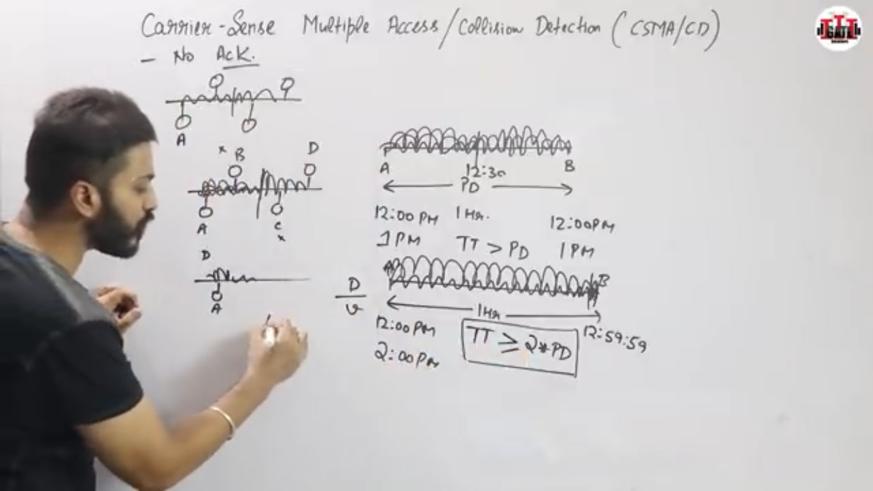 Carrier-Sense Multiple Access/Collision Detection (CSMA/CD)
- No Ack.
A
x B D
A C
x
A 12:30 B
PD
12:00 PM 1 Hr. 12:00PM
1 PM TT > PD 1 PM
D
A
D
v
B
1Hr
12:00PM 12:59:59
2:00PM TT ≥ 2*PD
GATE